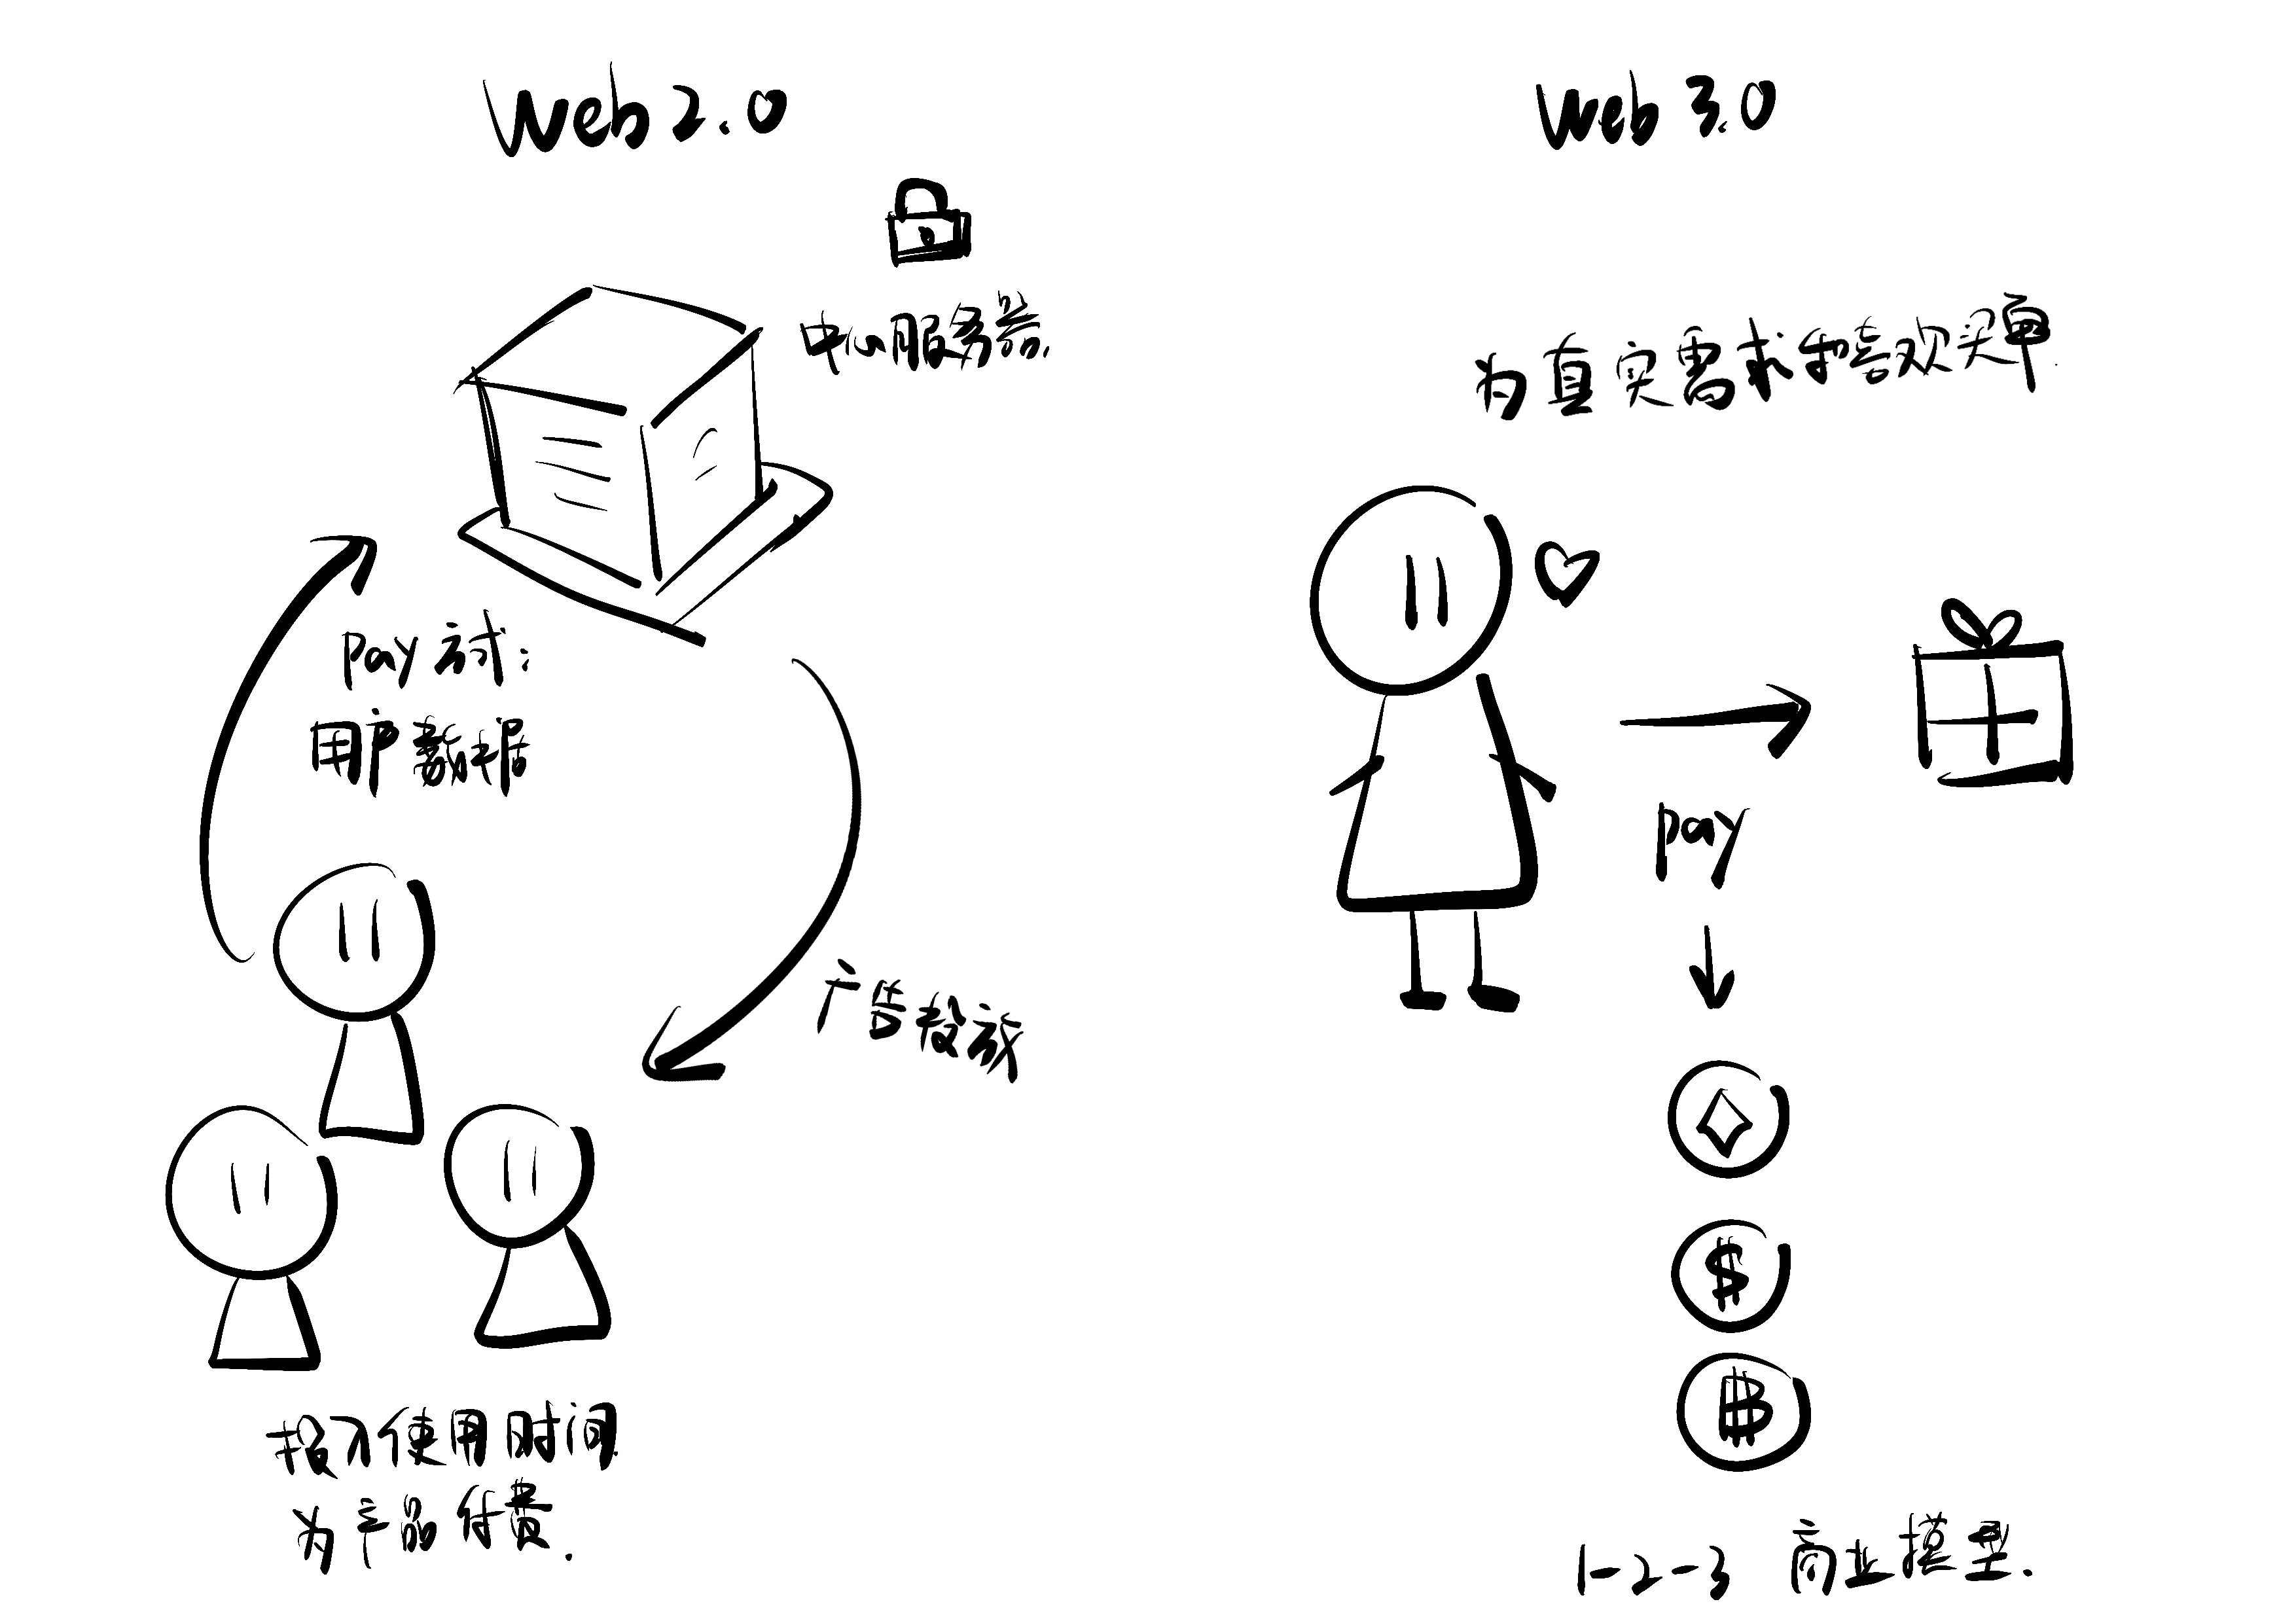 Web 2.0
中心服务器.
pay 方式:
用户数据
广告投放
投入使用时间
为产品付费.
Web 3.0
为真实需求和喜欢买单.
pay
$
1-2-3 商业模型.